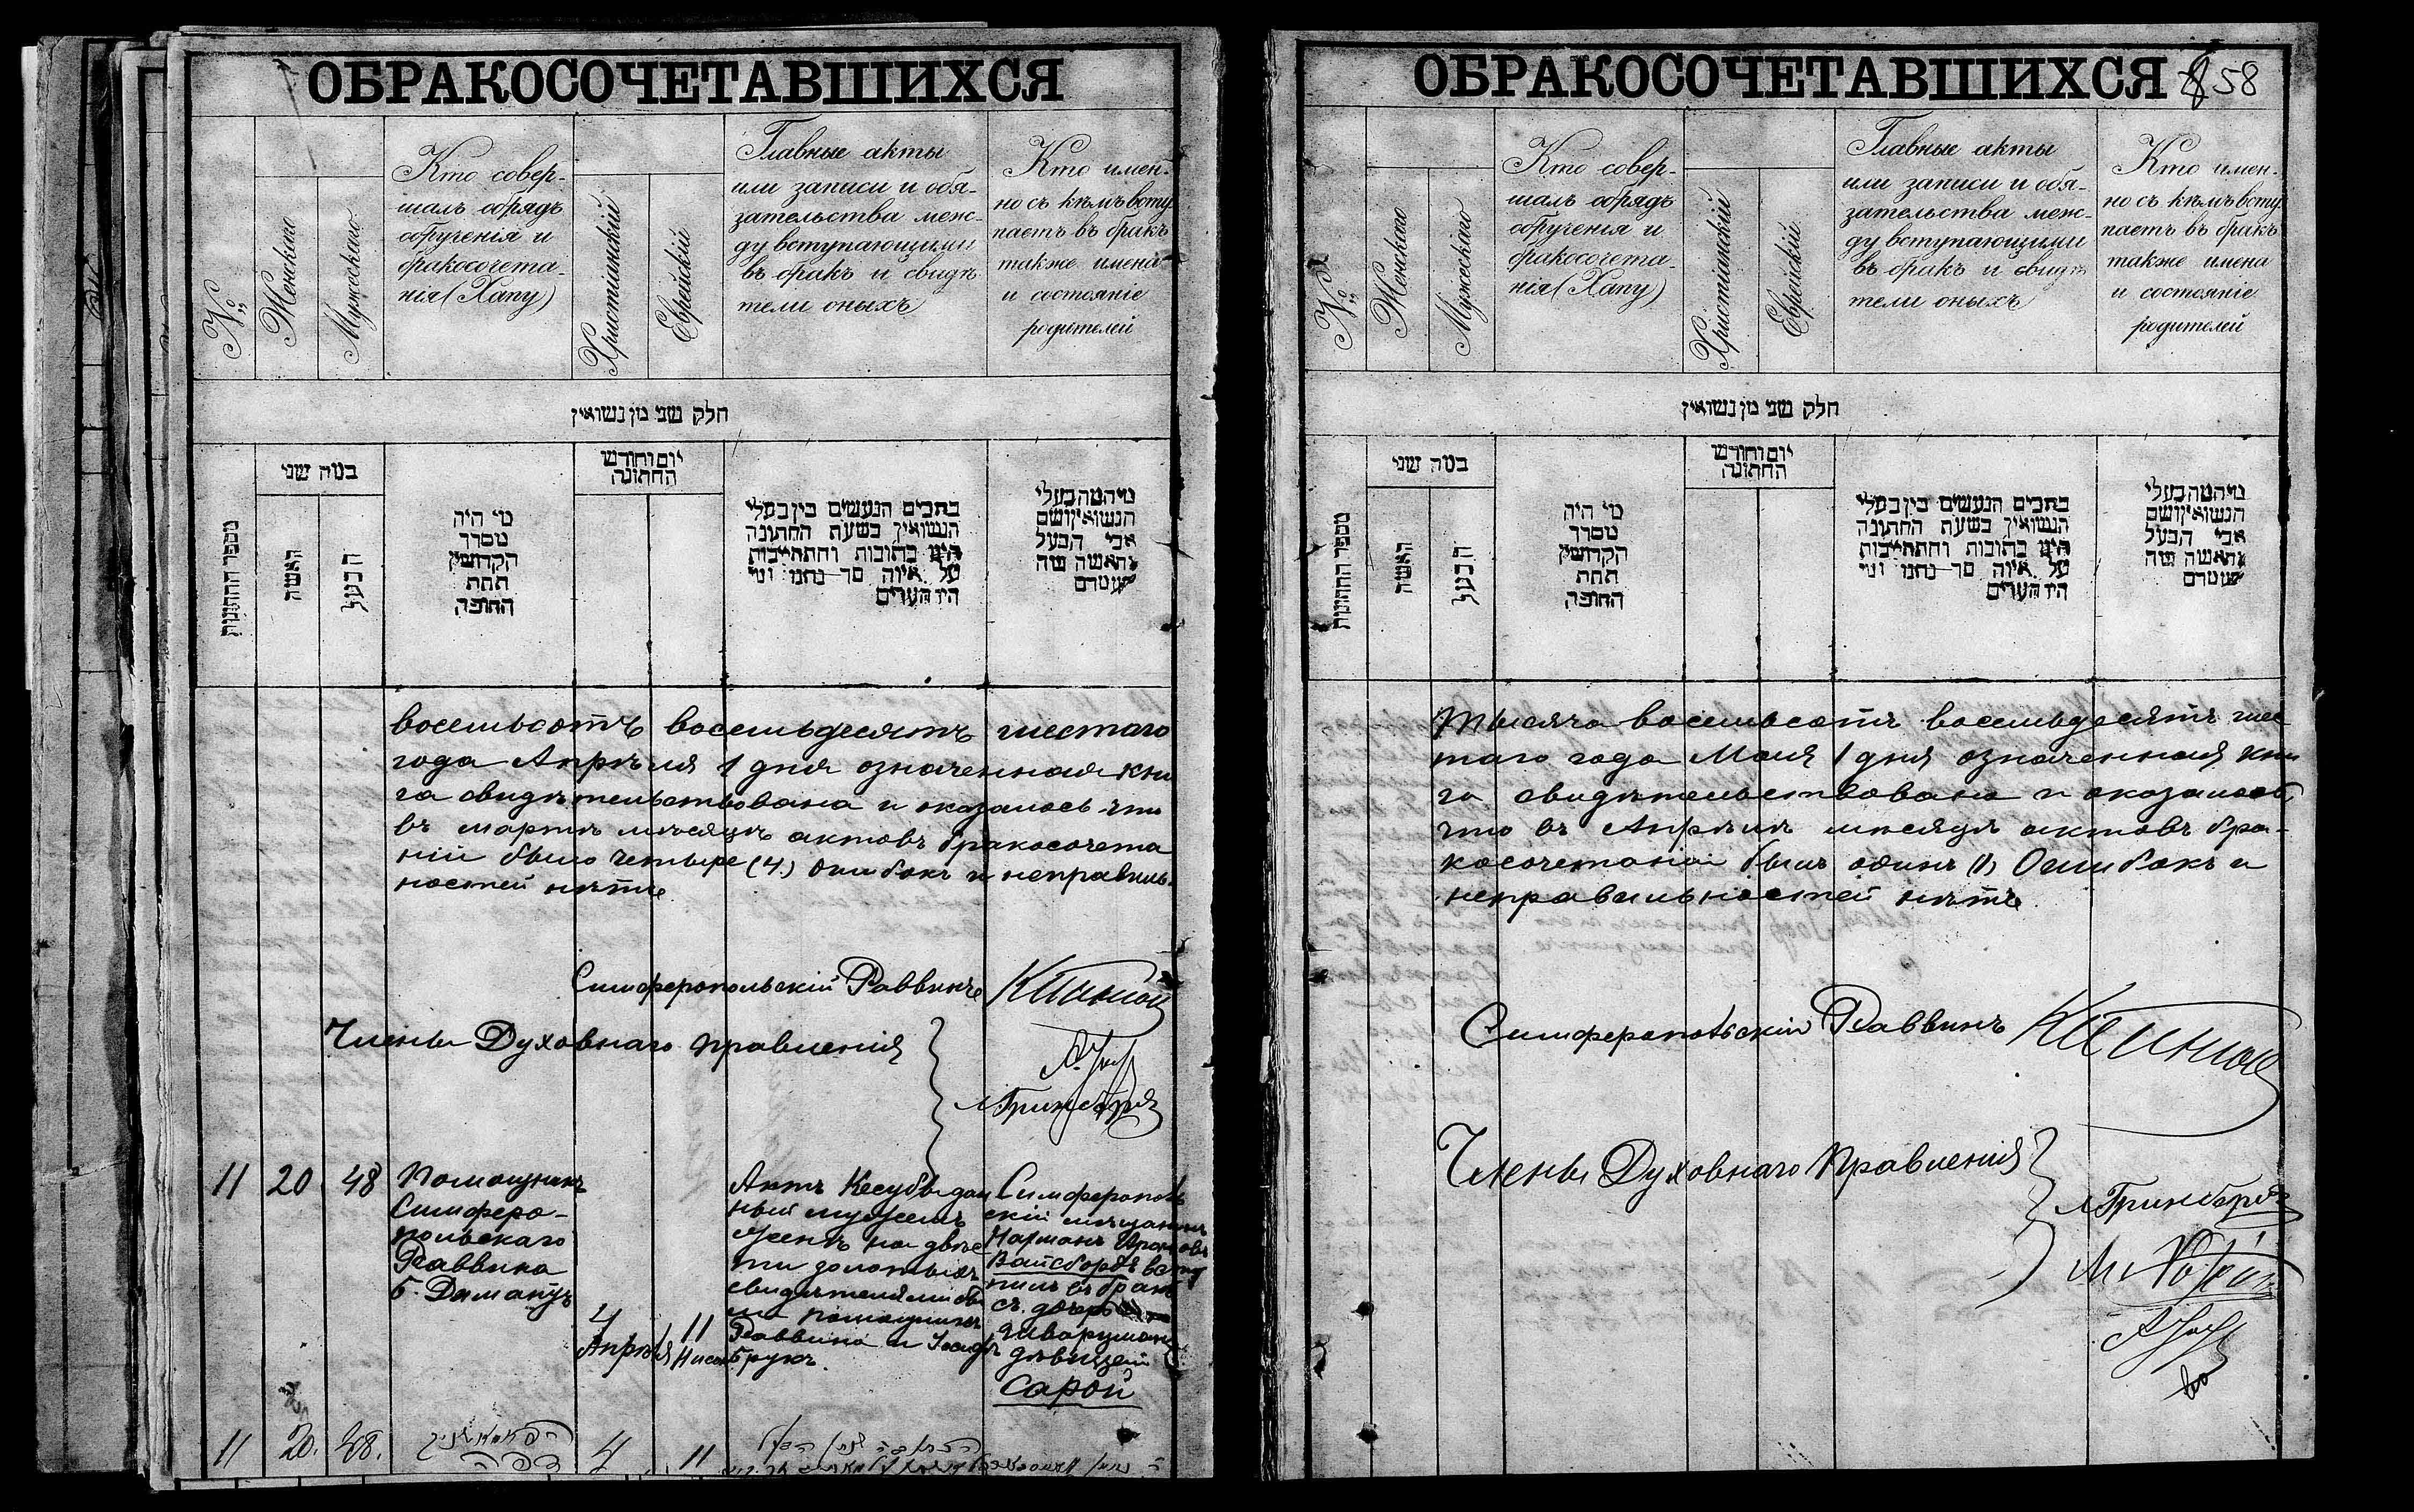 ОБРАКОСОЧЕТАВШИХСЯ
№
Женскаго
Мужескаго
Кто совер-
шалъ обрядъ
обрученія и
бракосочета-
нія (Хапу)
Христіанскій
Еврейскій
Главные акты
или записи и обя-
зательства меж-
ду вступающими
въ бракъ и свидѣ
тели оныхъ
Кто имен-
но съ кѣмъ всту
паетъ въ бракъ
также имена
и состояніе
родителей
חלק שני מן נשואין
מספר החתונות
כמה שני
האשה
הבעל
מי היה
מסדר
הקדושין
תחת
החופה
יום וחודש
החתונה
כתבים הנעשים בין בעלי
הנשואין בשעת החתונה
היינו כתובות והתחייבות
על איזה סך נתנו ומי
היו העדים
מי המה בעלי
הנשואין ושם
אבי הבעל
והאשה ומה
מעמדם
восемьсотъ восемьдесятъ шестаго
года Апрѣля 1 дня означенная кни
га свидѣтельствована и оказалось что
въ мартѣ мѣсяцѣ актовъ бракосочета
ній было четыре (4.) Ошибокъ и неправиль-
ностей нѣтъ
Симферопольскій Раввинъ
Члены Духовнаго правленія
Гринбергъ
11 20 48
Помощникъ
Симферо-
польскаго
Раввина
Б.
4
Апрѣля
11
Нисон
Актъ Кесубы дан
ный мужемъ
женѣ на двѣс
ти золотыхъ
свидѣтелями бы
ли помощникъ
Раввина и
Брукъ.
Симферополь
скій мѣщанинъ
Нарманъ
Вайсбордъ всту
пилъ въ бракъ
съ дочерью
дѣвицей
Сарой
11 20. 48. 4 11
ОБРАКОСОЧЕТАВШИХСЯ 58
№
Женскаго
Мужескаго
Кто совер-
шалъ обрядъ
обрученія и
бракосочета-
нія (Хапу)
Христіанскій
Еврейскій
Главные акты
или записи и обя-
зательства меж-
ду вступающими
въ бракъ и свидѣ
тели оныхъ
Кто имен-
но съ кѣмъ всту
паетъ въ бракъ
также имена
и состояніе
родителей
חלק שני מן נשואין
מספר החתונות
כמה שני
האשה
הבעל
מי היה
מסדר
הקדושין
תחת
החופה
יום וחודש
החתונה
כתבים הנעשים בין בעלי
הנשואין בשעת החתונה
היינו כתובות והתחייבות
על איזה סך נתנו ומי
היו העדים
מי המה בעלי
הנשואין ושם
אבי הבעל
והאשה ומה
מעמדם
Тысяча восемьсотъ восемьдесятъ шес
таго года Мая 1 дня означенная кни
га свидѣтельствована и оказалось,
что въ Апрѣлѣ мѣсяцѣ актовъ бра-
косочетаній былъ одинъ (1) Ошибокъ и
неправильностей нѣтъ
Симферопольскій Раввинъ
Члены Духовнаго Правленія
Гринбергъ